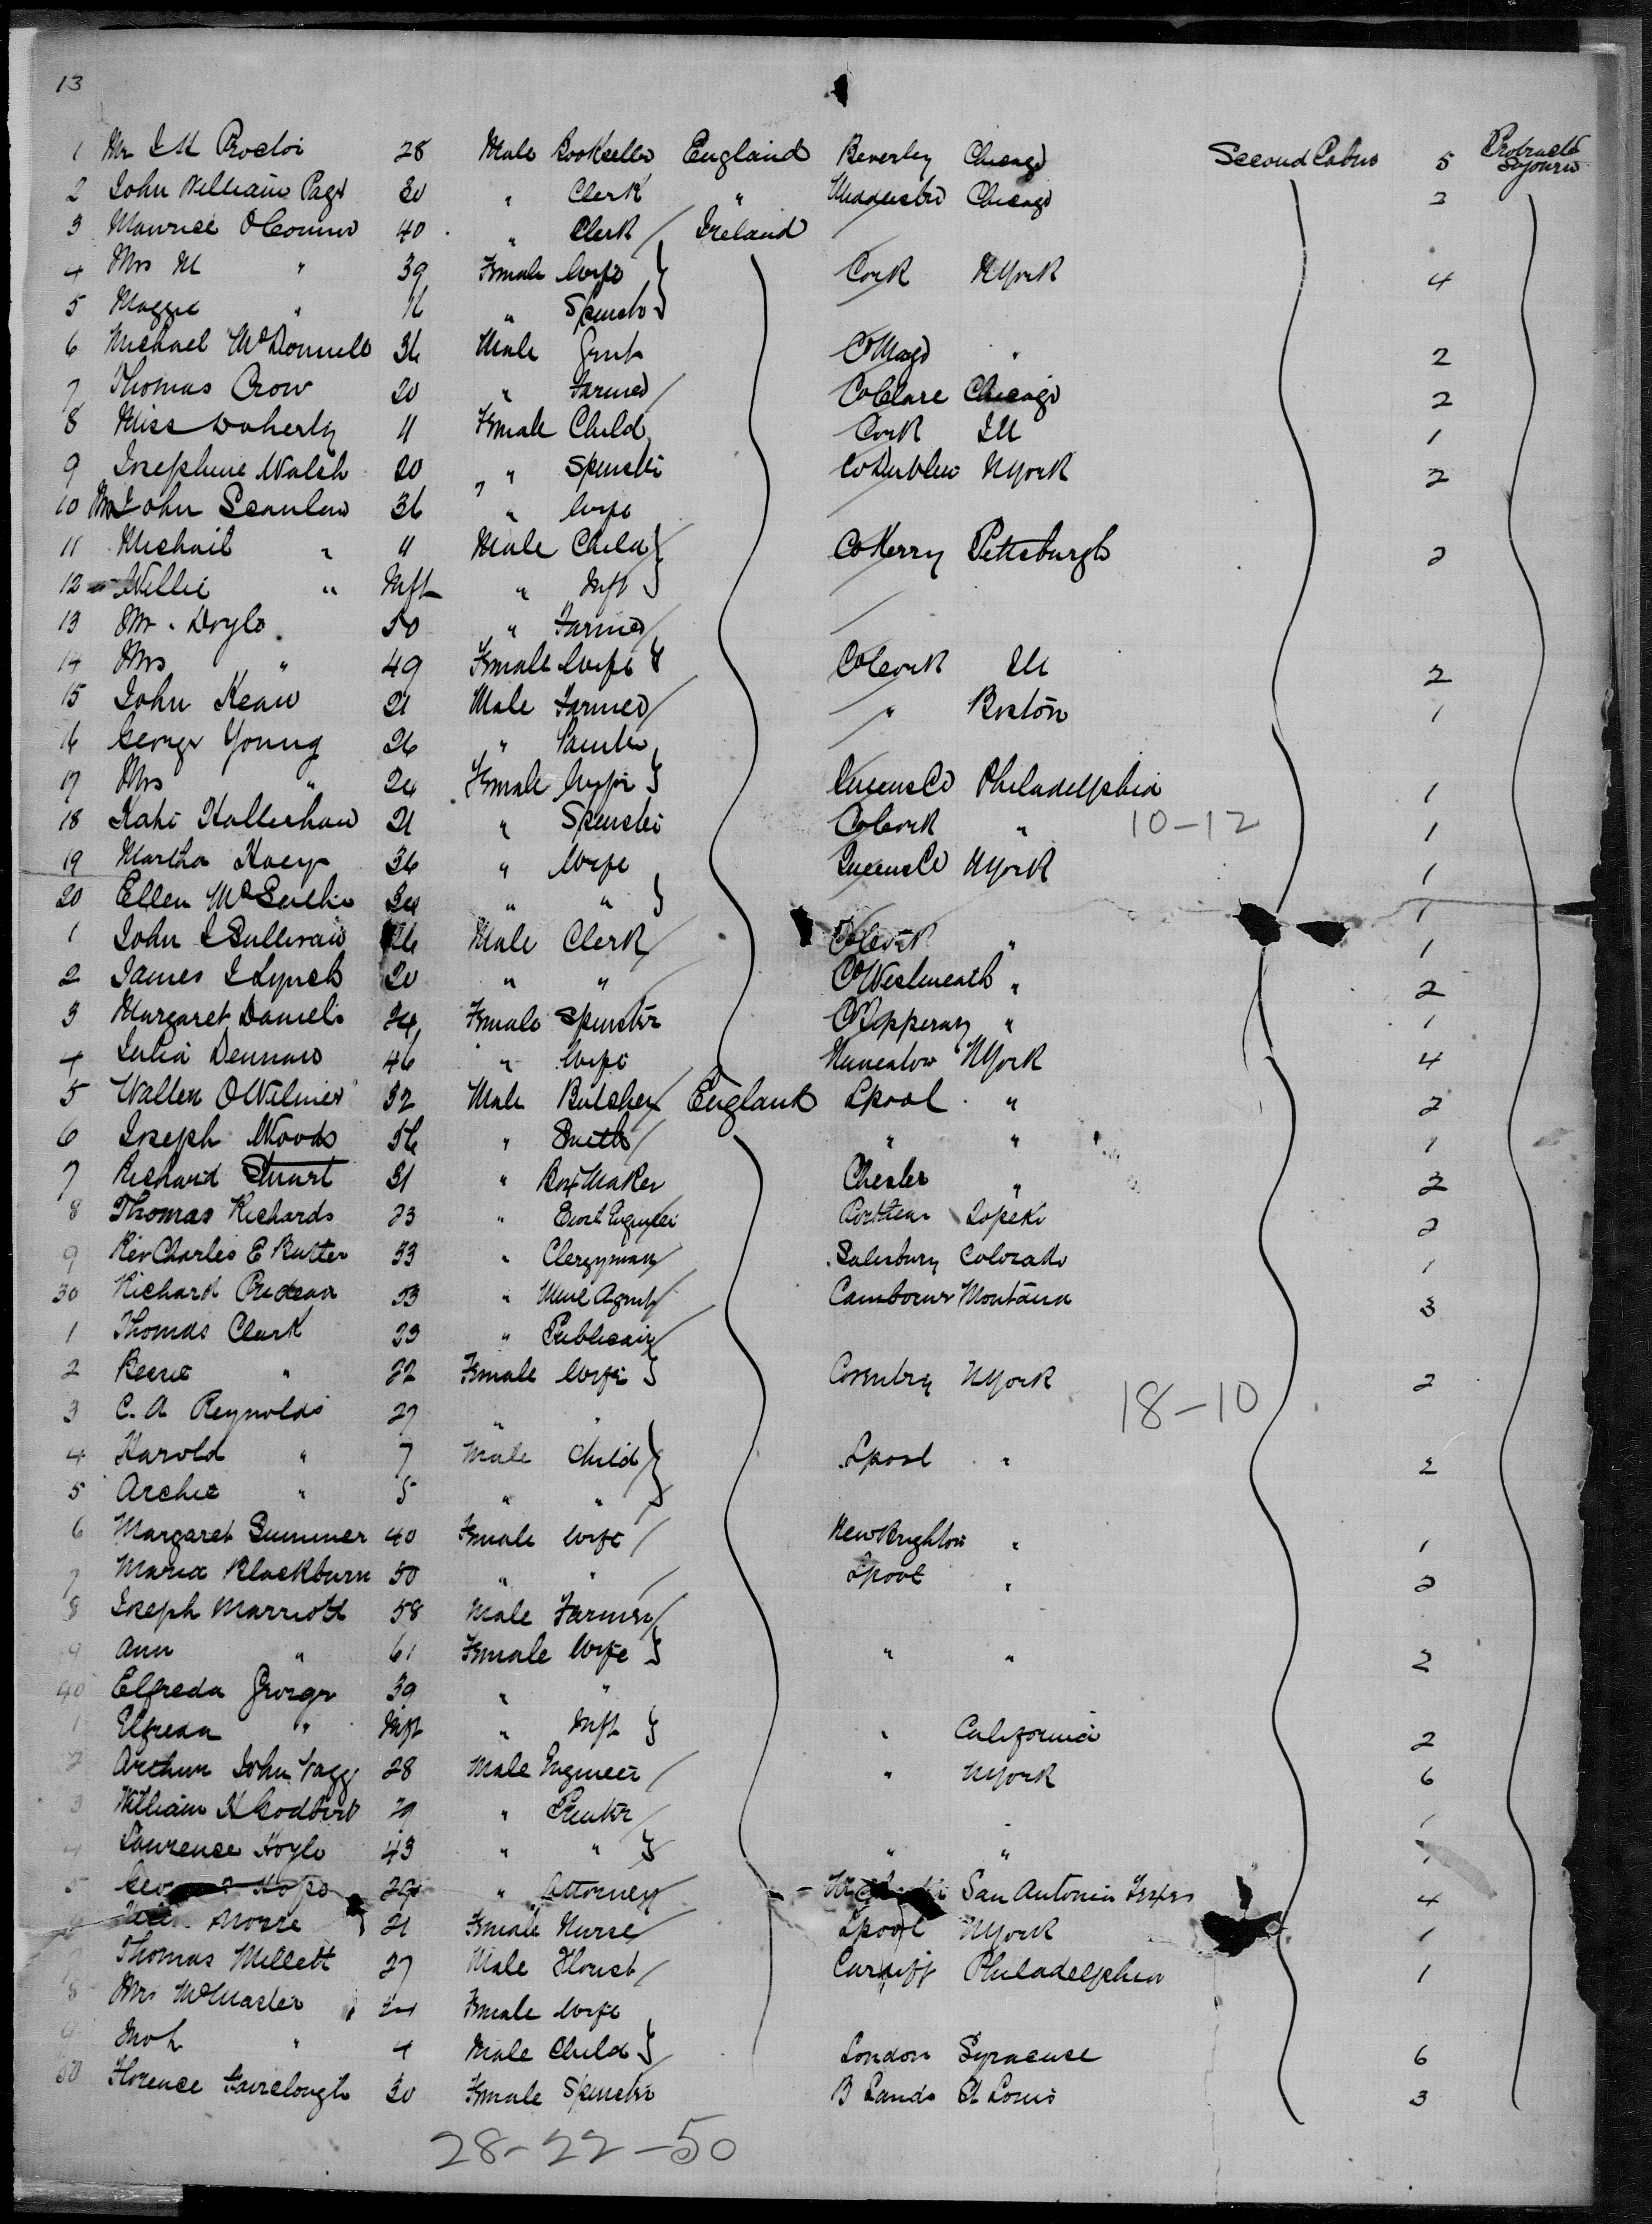 13
1 Mr J H Proctor 28 Male Bookseller England Beverley Chicago Second Cabin 5 Protracted Sojourn
2 John William Page 20 " Clerk " Chicago 2
3 Maurice O'Connor 40 " Clerk Ireland
4 Mrs M " 39 Female Wife Cork N York 4
5 Maggie " 16 " Spinster
6 Michael McDonnell 36 Male Gent Co Mayo " 2
7 Thomas Crow 20 " Farmer Co Clare Chicago 2
8 Miss Doherty 11 Female Child Cork Ill 1
9 Josephine Walsh 20 " Spinster Co Dublin N York 2
10 Mrs John Scanlan 36 " Wife
11 Michail " 11 Male Child Co Kerry Pittsburgh 2
12 Willie " Inft " Inft
13 Mr. Doyle 50 " Farmer
14 Mrs " 49 Female Wife Co Cork Ill 2
15 John Kean 21 Male Farmer " Boston 1
16 George Young 26 "
17 Mrs " 24 Female Wife Queens Co Philadelphia 1
18 Kate 21 " Spinster Co Cork " 10-12 1
19 Martha 36 " Wife Queens Co N York 1
20 Ellen " " 1
1 John J Sullivan 26 Male Clerk Co Cork " 1
2 James J Lynch 20 " " Co Westmeath " 2
3 Margaret Daniels 24 Female Spinster Co Tipperary " 1
4 Julia Dennan 46 " Wife Nuneaton N York 4
5 32 Male Butcher England Lpool " 2
6 Joseph Woods 56 " Smith " " 1
7 Richard Stuart 31 " Box Maker Chester " 2
8 Thomas Richards 23 " Civil Engineer Topeka 2
9 Rev Charles E Rutter 33 " Clergyman Salisbury Colorado 1
30 Richard Prideaux 53 " Mine Agent Camborne Montana 3
1 Thomas Clark 23 " Publican
2 " 22 Female Wife Coventry N York 2
3 C. A Reynolds 27 " " 18-10
4 Harold " 7 Male Child Lpool " 2
5 Archie " 5 " "
6 Margaret Summer 40 Female Wife New Brighton " 1
7 Maria Blackburn 50 " " Lpool " 2
8 Joseph Marriott 58 Male Farmer
9 Ann " 61 Female Wife " " 2
40 Elfreda George 39 " "
1 Elfreda " Inft " Inft " California 2
2 Arthur John 28 Male Engineer " N York 6
3 William H 29 " Printer " 1
4 Lawrence Hoyle 43 " " " " 1
5 Hope " Attorney San Antonio Texas 4
Moore 21 Female Nurse Lpool N York 1
Thomas Millett 27 Male Florist Cardiff Philadelphia 1
8 Mrs McMaster Female Wife
9 " 4 Male Child London Syracuse 6
50 Florence Fairclough 30 Female Spinster St Louis 3
28-22-50